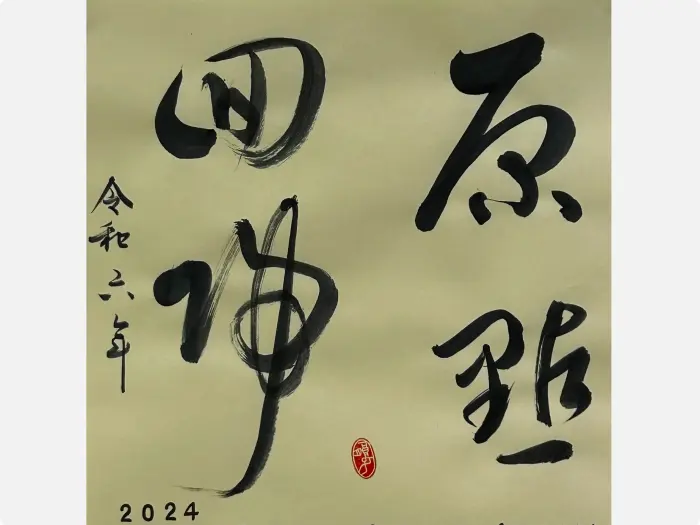 原點
回帰
令和六年
2024